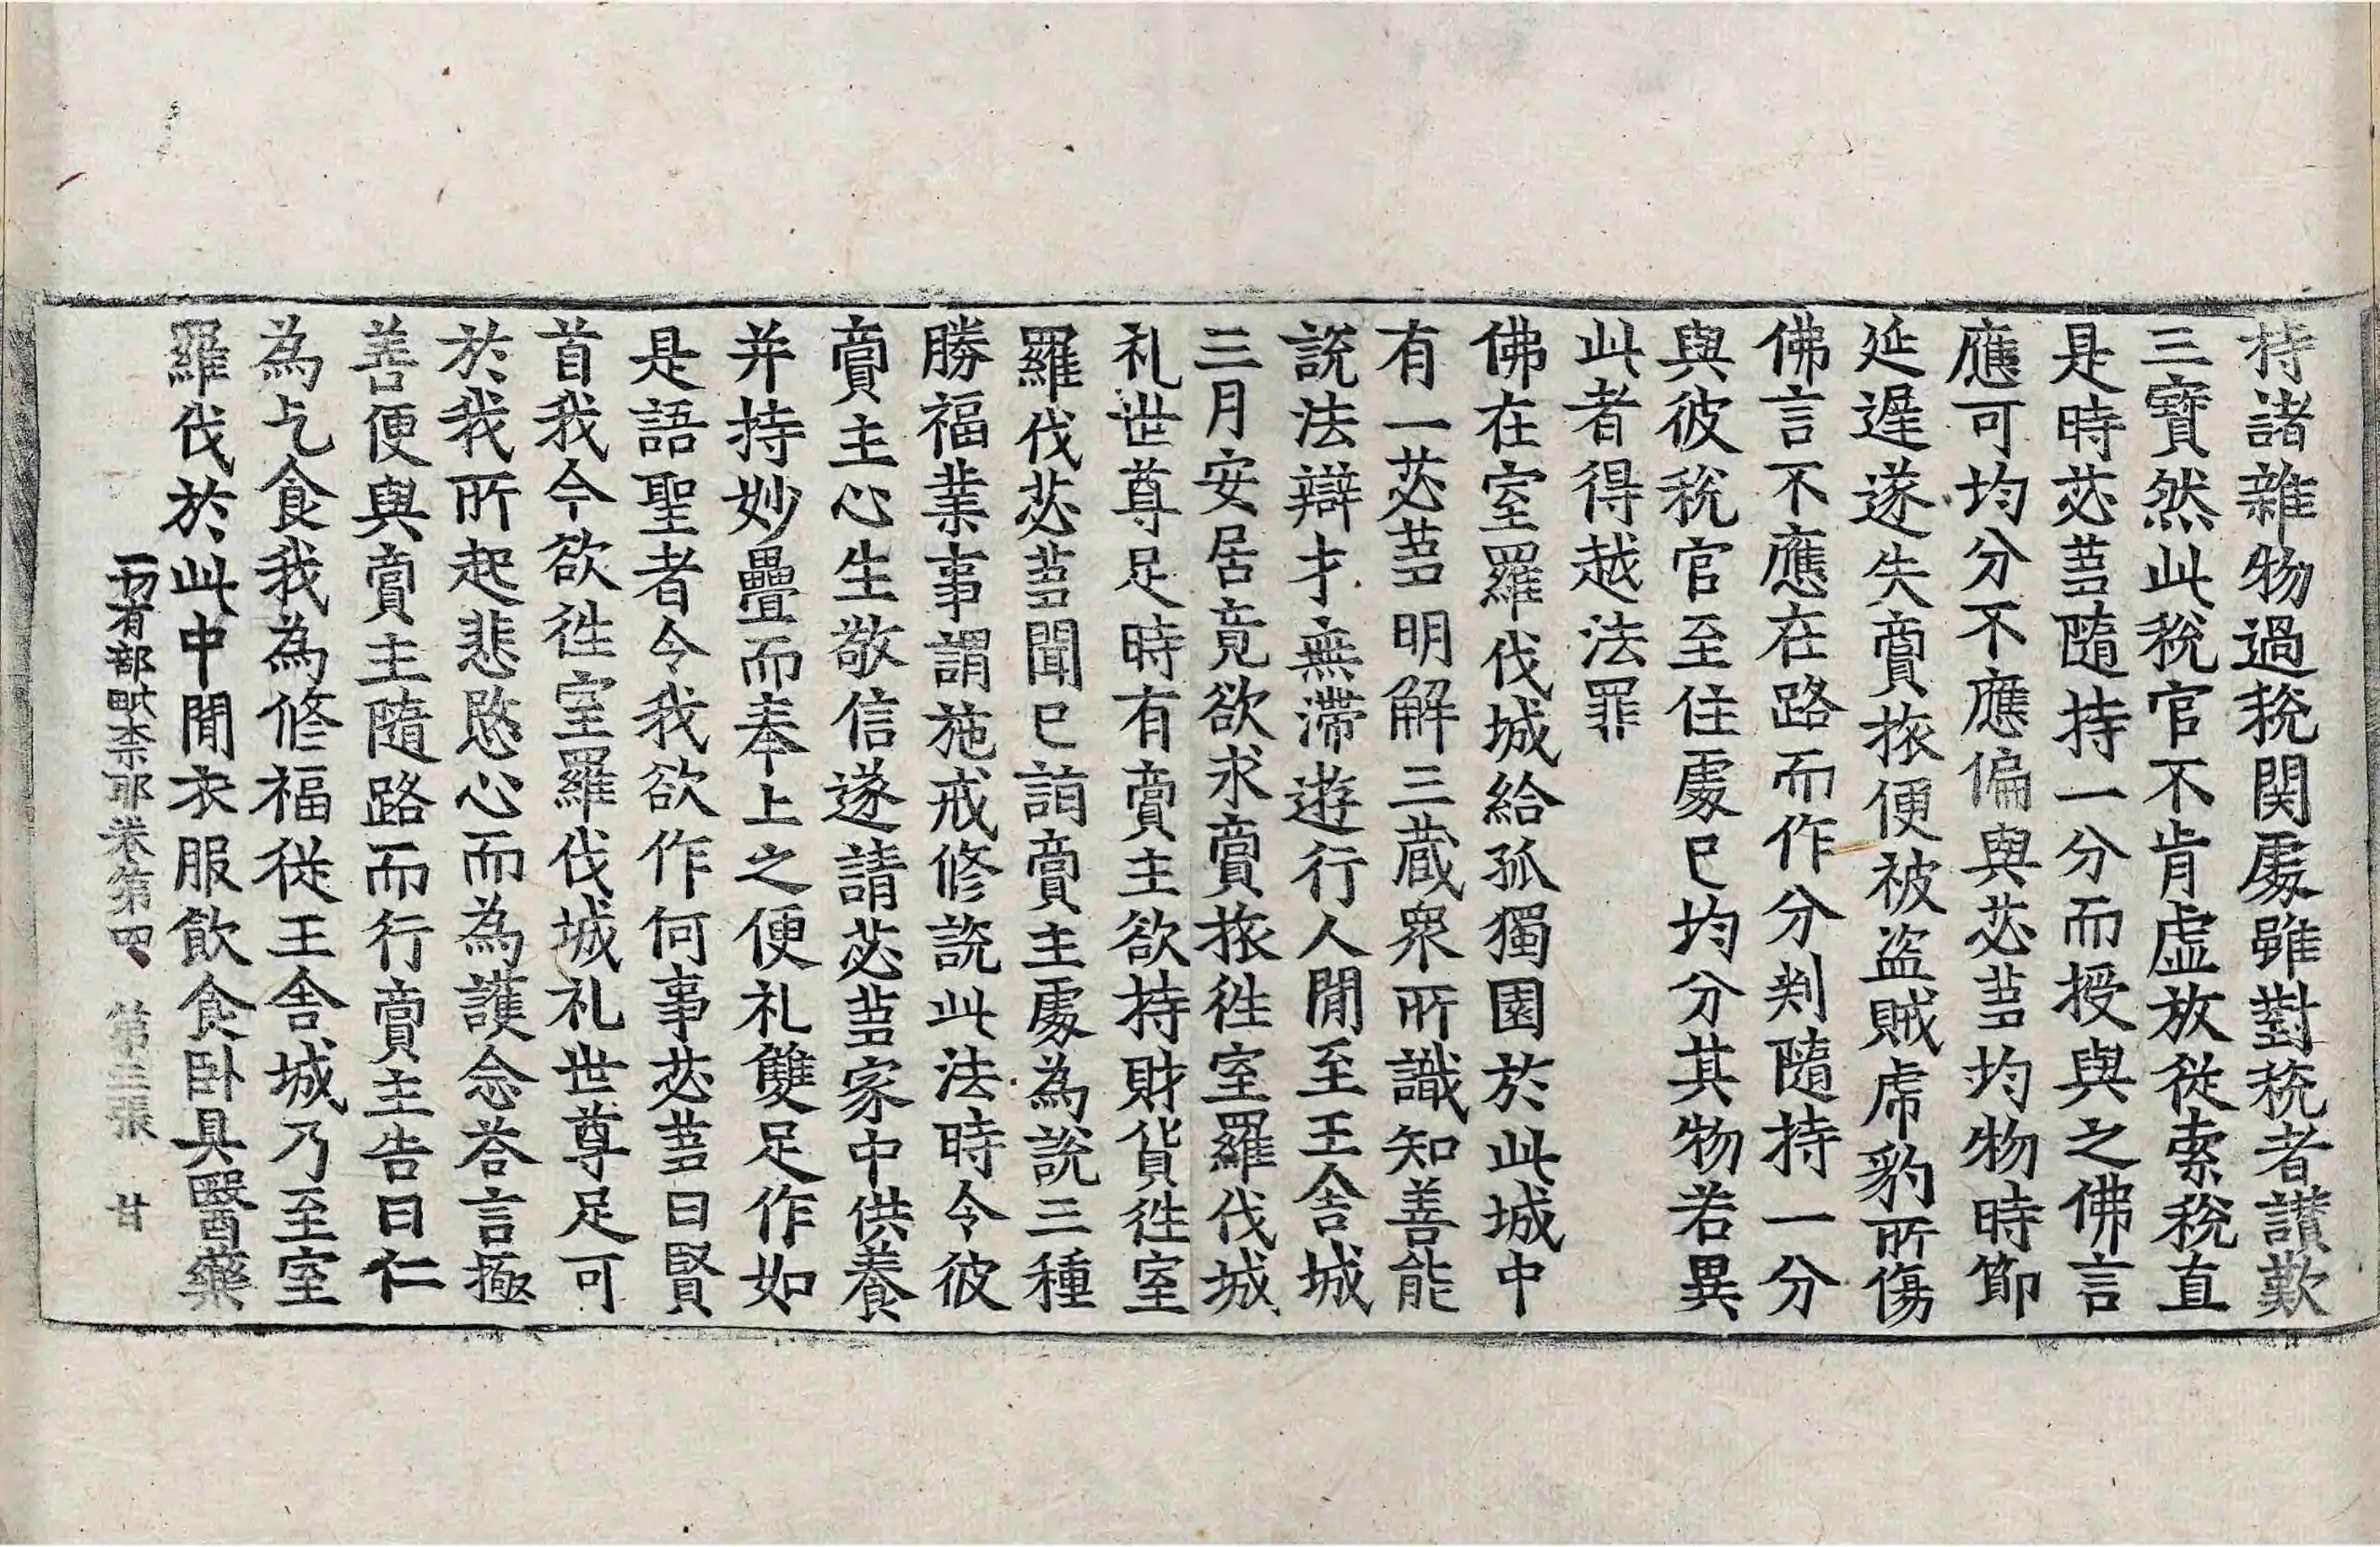 持諸雜物過稅関處雖對稅者讃歎
三寶然此稅官不肯虛放從索稅直
是時苾蒭隨持一分而授與之佛言
應可均分不應偏與苾蒭均物時節
延遲遂失啇旅便被盜賊虎豹所傷
佛言不應在路而作分判隨持一分
與彼稅官至住處已均分其物若異
此者得越法罪
佛在室羅伐城給孤獨園於此城中
有一苾蒭明解三蔵衆所識知善能
說法辯才無滯遊行人閒至王舍城
三月安居竟欲求賣旅徃室羅伐城
礼世尊足時有賣主欲持財貨徃室
羅伐苾蒭聞已詣賣主處為說三種
勝福業事謂施戒修說此法時令彼
賣主心生敬信遂請苾蒭家中供養
并持妙疊而奉上之便礼雙足作如
是語聖者令我欲作何事苾蒭曰賢
首我今欲徃室羅伐城礼世尊足可
於我所起悲愍心而為護念荅言極
善便與賣主隨路而行賣主告曰仁
為乞食我為修福從王舍城乃至室
羅伐於此中閒衣服飲食卧具醫藥
一切有部毗柰耶卷第四 第三張 甘